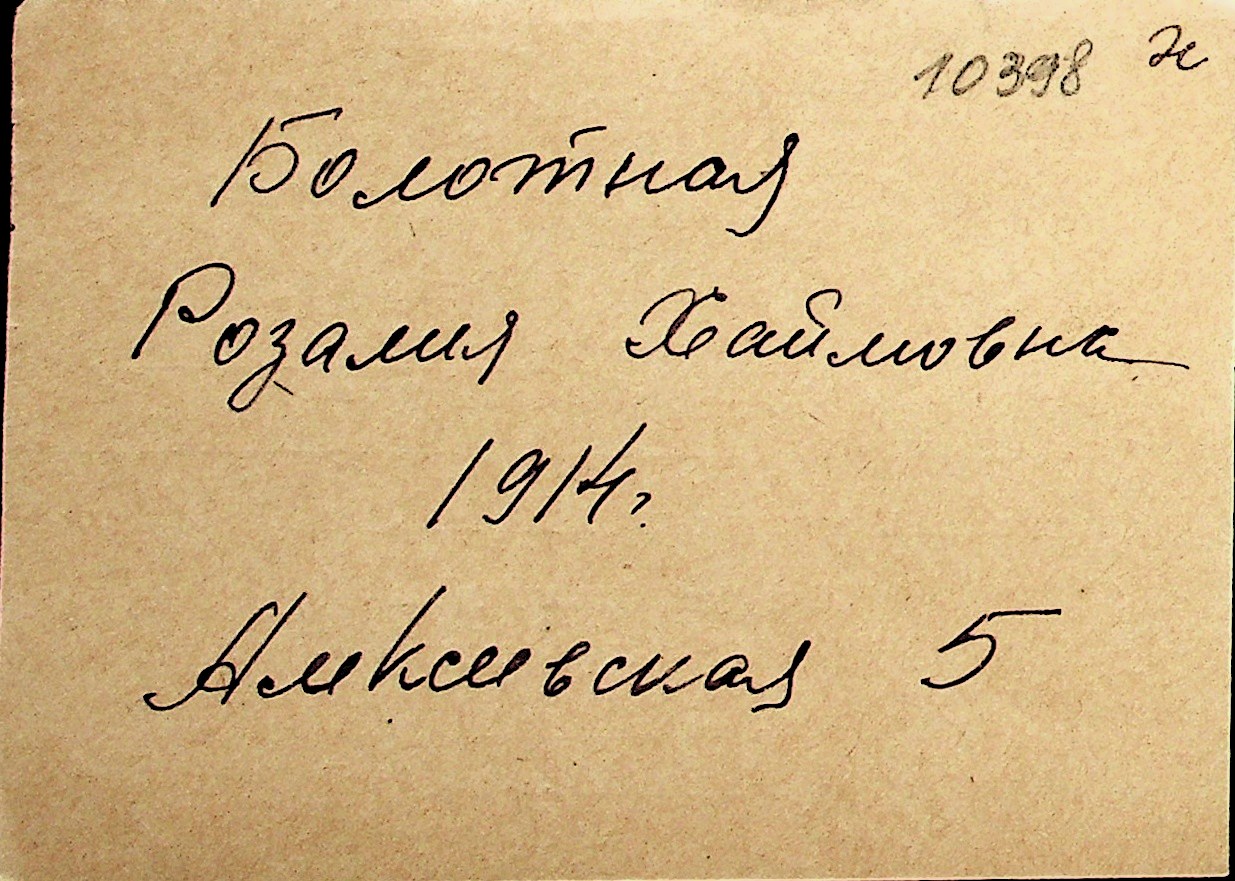 10398 Н
Болотная
Розалия Хаймовна
1914г.
Алексеевская 5